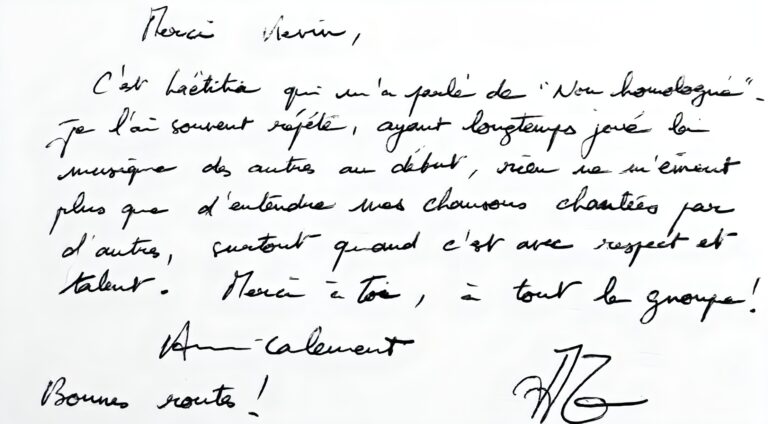 Merci Kevin,
C'est Laëtitia qui m'a parlé de "Non homologué" -
Je l'ai souvent répété, ayant longtemps joué la
musique des autres au début, rien ne m'émeut
plus que d'entendre mes chansons chantées par
d'autres, surtout quand c'est avec respect et
talent. Merci à toi, à tout le groupe!
Ami-calement
Bonnes routes!